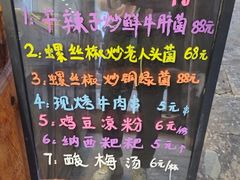 1:干辣子炒鲜牛肝菌88元
2:螺丝椒炒老人头菌68元
3:螺丝椒炒铜绿菌88元
4:现烤牛肉串5元/串
5:鸡豆凉粉6元/份
6:纳西粑粑5元/个
7:酸梅汤6元/杯